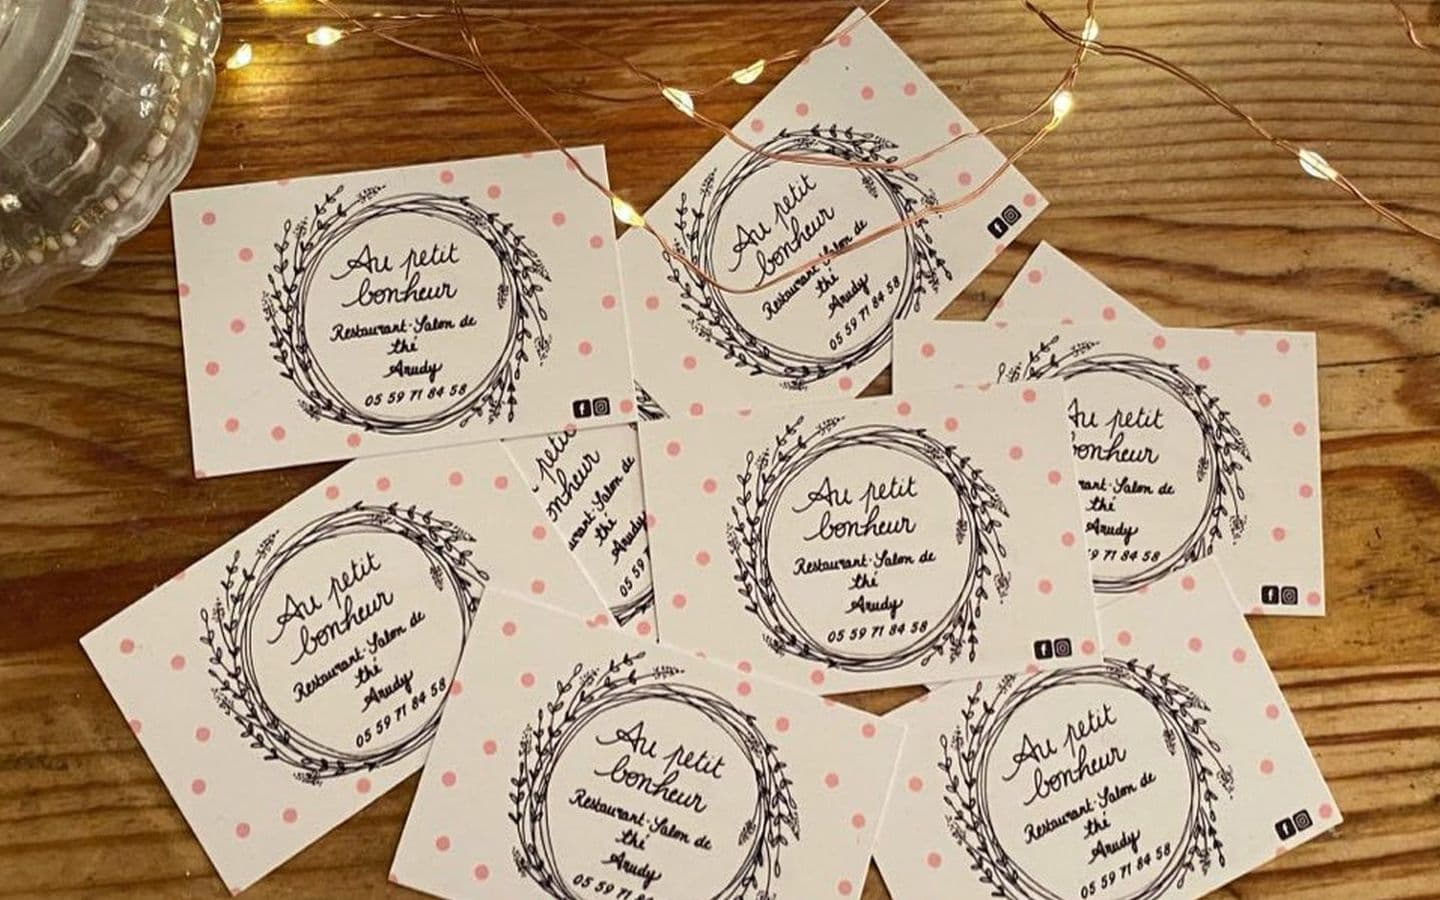 Au petit
bonheur
Restaurant-Salon de
thé
Arudy
05 59 71 84 58
Au petit
bonheur
Restaurant-Salon de
thé
Arudy
05 59 71 84 58
Au petit
bonheur
Restaurant-Salon de
thé
Arudy
9 71 84 58
petit
Salon de
thé
Arudy
05 59
Au petit
bonheur
Restaurant-Salon de
thé
Arudy
05 59 71 84 58
Au petit
bonheur
Restaurant-Salon de
thé
Arudy
05 59 71 84 58
Au petit
bonheur
Restaurant-Salon de
thé
Arudy
05 59 71 8
Au petit
bonheur
Restaurant-Salon de
thé
Arudy
05 59 71 84 58